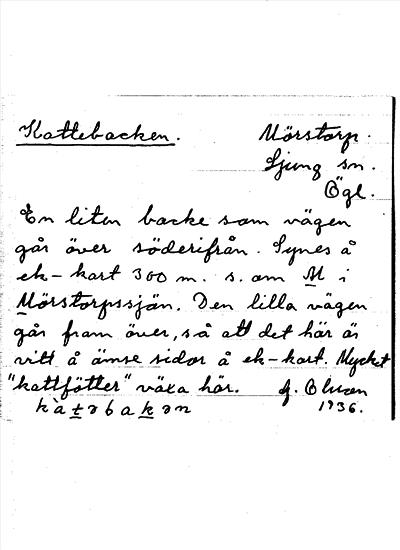 Kattebacken. Mörstorp.
Ljung sn.
Ögl.
En liten backe som vägen
går över söderifrån. Synes å
ek-kart 300 m. s. om M i
Mörstorpssjön. Den lilla vägen
går fram över, så att det här är
vitt å ömse sidor å ek-kart. Mycket
"kattfötter" växa här.
1936.